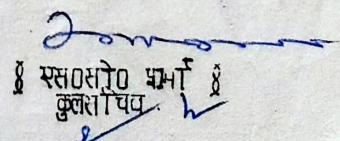 ४ एस०सी० शर्मा ४
कुलसचिव